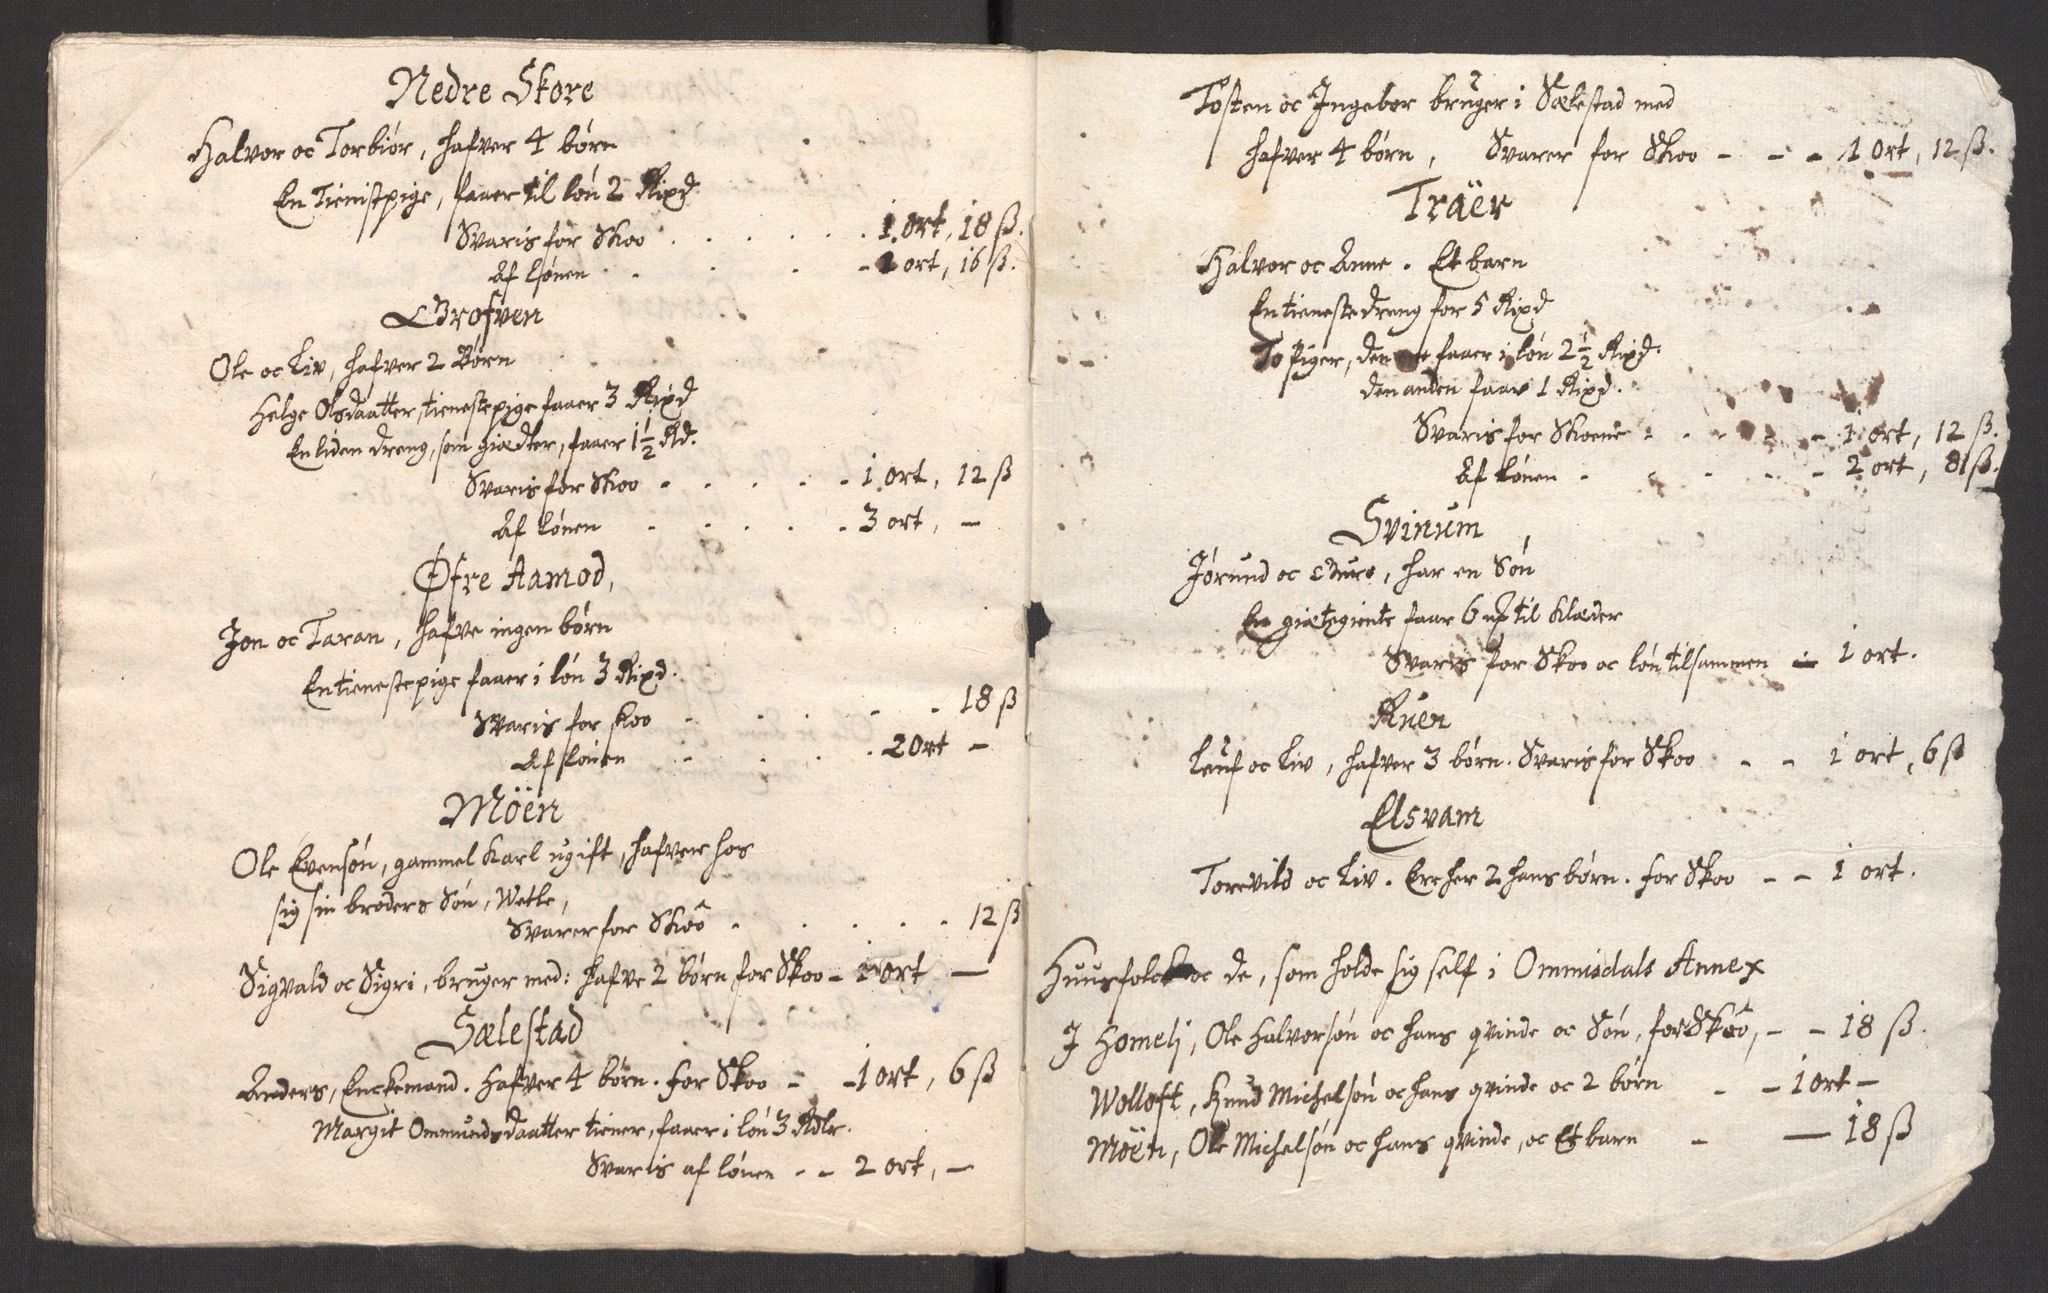 Nedre Skore
Halvor oc Torbiør, hafver 4 børn
En Tienistpige, faaer til løn 2 Rixd.
Svaris for Skoo . . . . . . 1 ort, 18 ß.
Af Lønen . . . . - 1 ort, 16 ß.
Grofven
Ole oc Liv, hafver 2 Børn
Helge Olsdaatter, tienestepige faaer 3 Rixd
En liden dreng, som giædter, faaer 1½ Rd.
Svaris for Skoo - . . . - 1 ort, 12 ß
Af Lønen . . . . - 3 ort, -
Øfre Aamod,
Jon oc Taran, hafve ingen børn
En tienestepige faaer i løn 3 Rixd.
Svaris for skoo - . . . - - 18 ß
Af Lønen - . . . 2 Ort -
Möen
Ole Evensøn, gammel Karl ugift, hafver hos
sig sin broders Søn, Wetle,
Svarer for Skoo . . . . . 12 ß
Sigvald oc Sigri, bruger med: hafve 2 børn for Skoo - 1 ort -
Sælestad
Anders, Enckemand. Hafver 4 børn. for Skoo - - 1 ort, 6 ß
Margit Ommundsdaatter tiener, faaer i løn 3 Rdlr.
Svaris af lønen - - 2 ort, -
Tosten oc Ingebor bruger i Sælestad med
hafver 4 børn, Svarer for Skoo - - - 1 Ort, 12 ß.
Träer
Halvor oc Anne. Et barn
En tieneste dreng for 5 Rixd
To piger, den faaer i løn 2½ Rixd.
den anden faar 1 Rixd.
Svaris for Skoene - . . - - 1 ort, 12 ß.
Af Lønen - . . - - 2 ort, 8 ß.
Svinum
Jørund oc, har en Søn
En giætegiente faar 6 til Klæder
Svaris for Skoo oc løn tilsammen - 1 ort.
Ruen
Leuf oc Liv, hafver 3 børn. Svaris for Skoo - - 1 ort, 6 ß
Elsvam
Torevild oc Liv. Er her 2 hans børn. for Skoo - - 1 ort.
Huusfolck oc de, som holde sig self i Ommisdals Annex
J Homeli, Ole Halvorsøn oc hans qvinde oc Søn, for Skoo, - - 18 ß.
Wolloft, Knud Michelsøn oc hans qvinde oc 2 børn - - 1 ort -
Möen, Ole Michelsøn oc hans qvinde, oc Et barn - - 18 ß